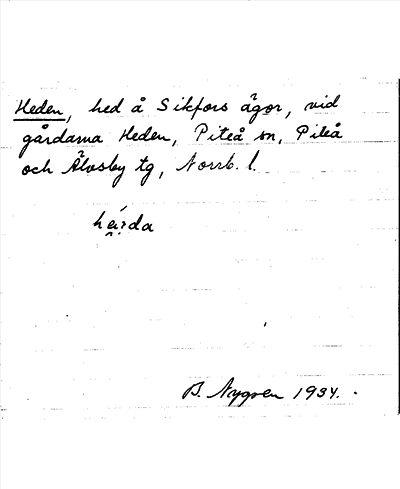 Heden, hed å Sikfors ägor, vid
gårdarna Heden, Piteå sn, Piteå
och Älvsby tg, Norrb. l.
B. Nygren 1934.